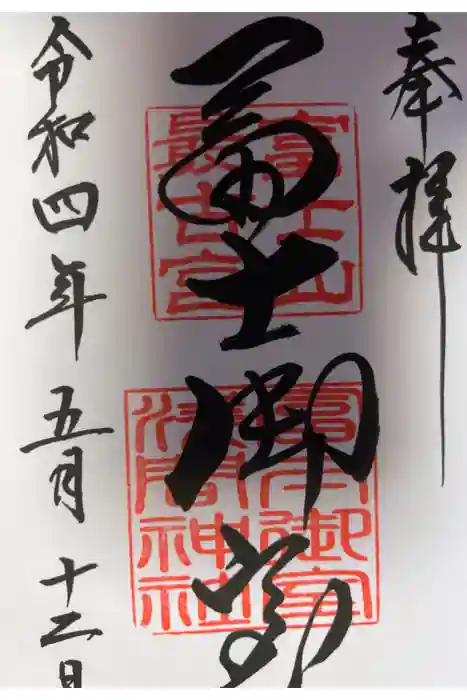 奉拝
冨士御室
令和四年五月十二日
富士山
最古宮
冨士御室
浅間神社